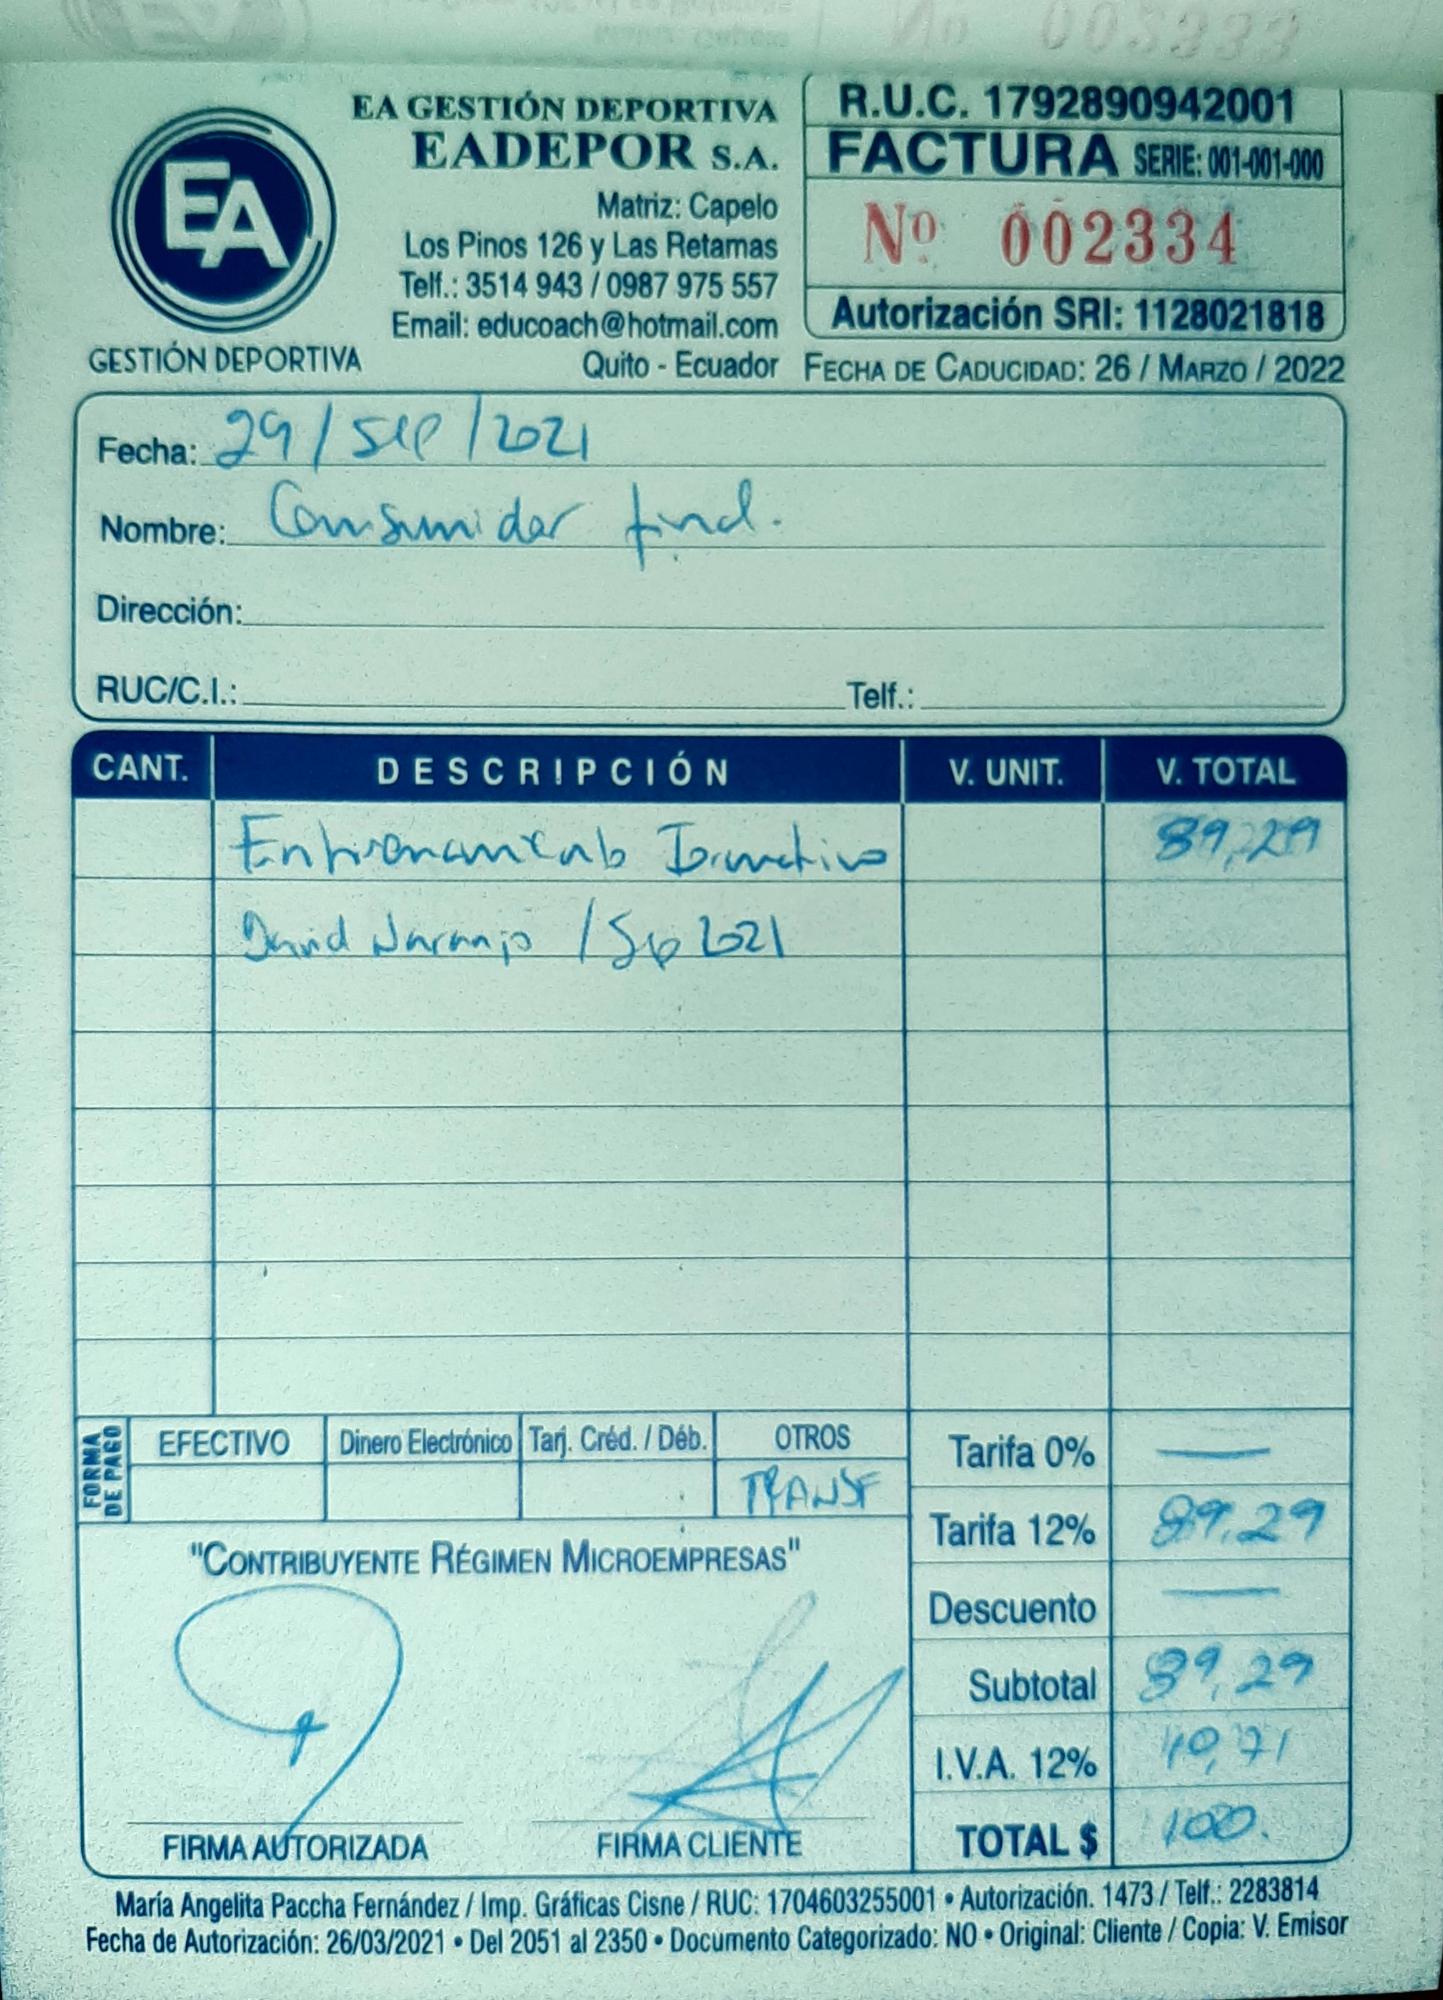 Nº 003333
EA
GESTIÓN DEPORTIVA
EA GESTIÓN DEPORTIVA
EADEPOR S.A.
Matriz: Capelo
Los Pinos 126 y Las Retamas
Telf.: 3514 943 / 0987 975 557
Email: educoach@hotmail.com
Quito - Ecuador
R.U.C. 1792890942001
FACTURA SERIE: 001-001-000
Nº 002334
Autorización SRI: 1128021818
FECHA DE CADUCIDAD: 26 / MARZO / 2022
Fecha: 29/Sep/2021
Nombre: Consumidor final.
Dirección:
RUC/C.I.: Telf.:
CANT. DESCRIPCIÓN V. UNIT. V. TOTAL
Entrenamiento Formativo 89,29
David Naranjo / Sep 2021
FORMA DE PAGO
EFECTIVO Dinero Electrónico Tarj. Créd. / Déb. OTROS
TRANSF
Tarifa 0% —
Tarifa 12% 89,29
Descuento —
Subtotal 89,29
I.V.A. 12% 10,71
TOTAL $ 100.
"CONTRIBUYENTE RÉGIMEN MICROEMPRESAS"
FIRMA AUTORIZADA FIRMA CLIENTE
María Angelita Paccha Fernández / Imp. Gráficas Cisne / RUC: 1704603255001 • Autorización. 1473 / Telf.: 2283814
Fecha de Autorización: 26/03/2021 • Del 2051 al 2350 • Documento Categorizado: NO • Original: Cliente / Copia: V. Emisor